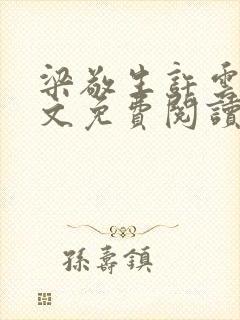 梁敬生許雲
文免費閱讀
孫壽鎮